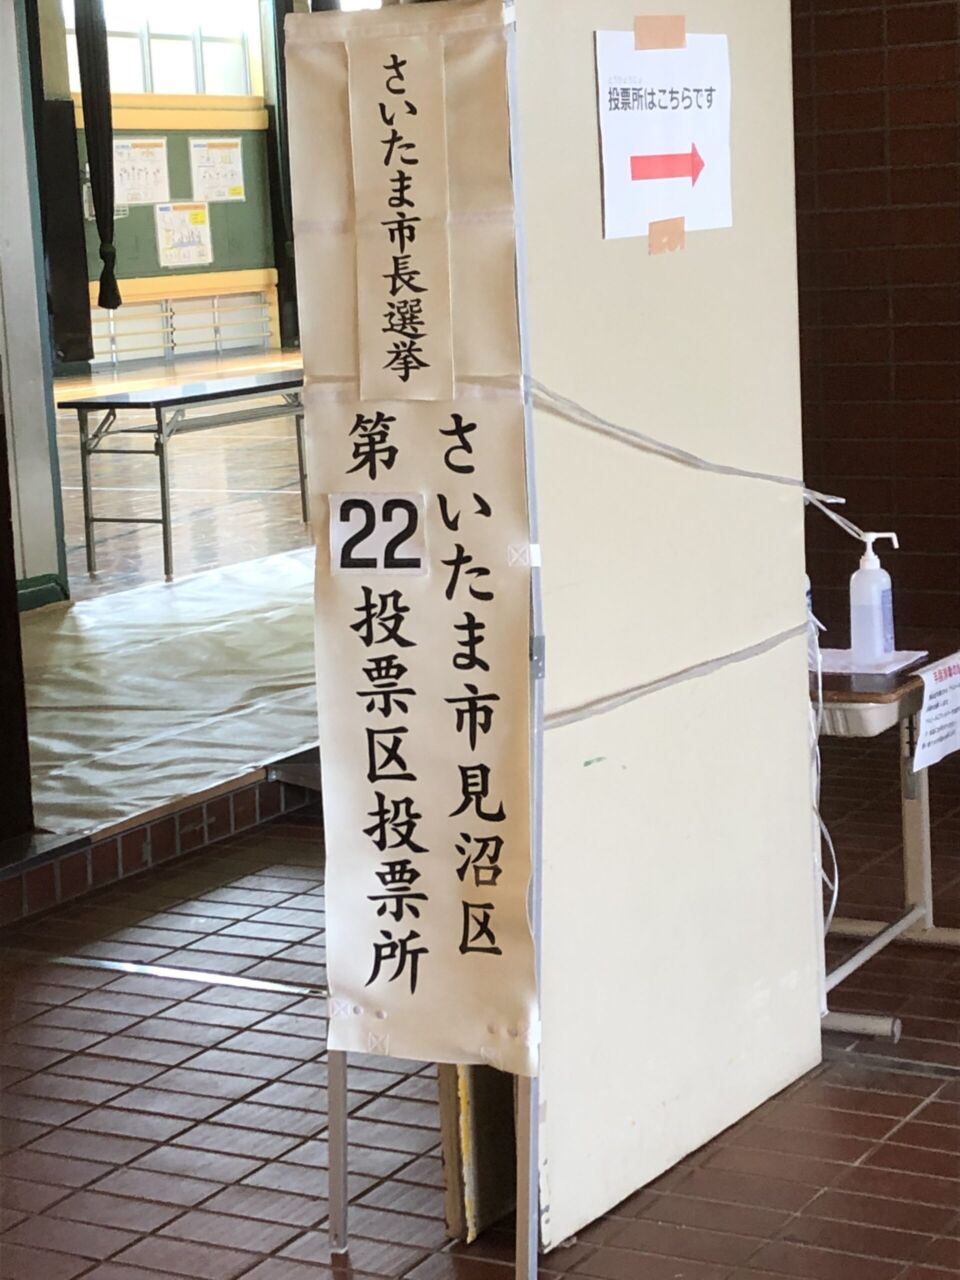 さいたま市長選挙
さいたま市見沼区
第22投票区投票所
とうひょうじょ
投票所はこちらです